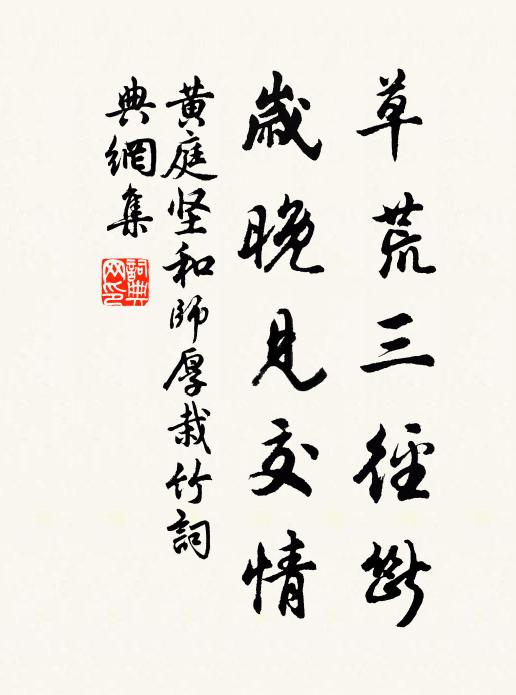 草荒三徑斷
歲晚見交情
黄庭坚和師厚栽竹詞
典網集
詞典
网印